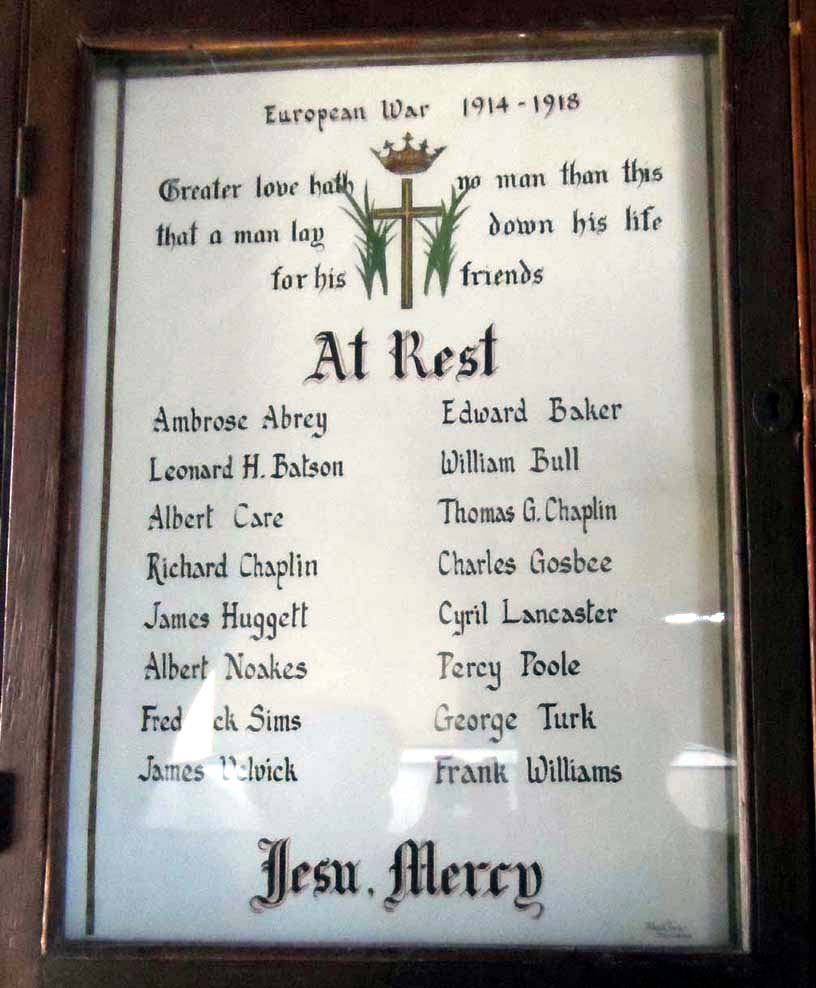 European War 1914 - 1918
Greater love hath no man than this
that a man lay down his life
for his friends
At Rest
Ambrose Abrey
Edward Baker
Leonard H. Batson
William Bull
Albert Care
Thomas G. Chaplin
Richard Chaplin
Charles Gosbee
James Huggett
Cyril Lancaster
Albert Noakes
Percy Poole
Sims
George Turk
James
Frank Williams
Jesu, Mercy